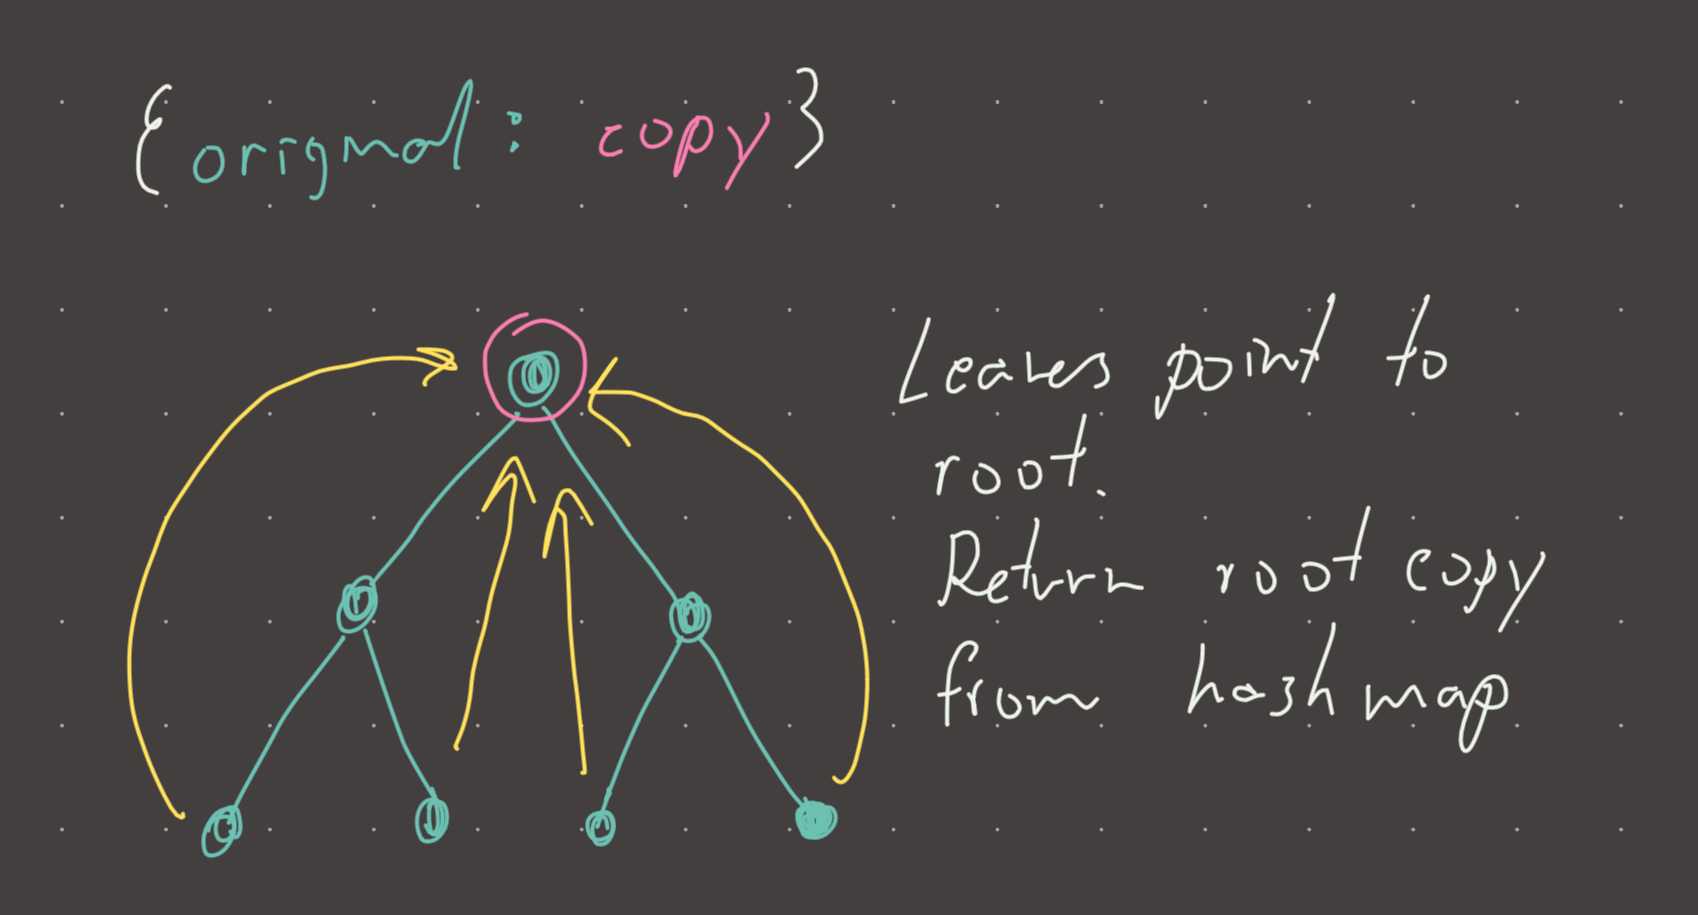 {original: copy}
Leaves point to
root.
Return root copy
from hashmap